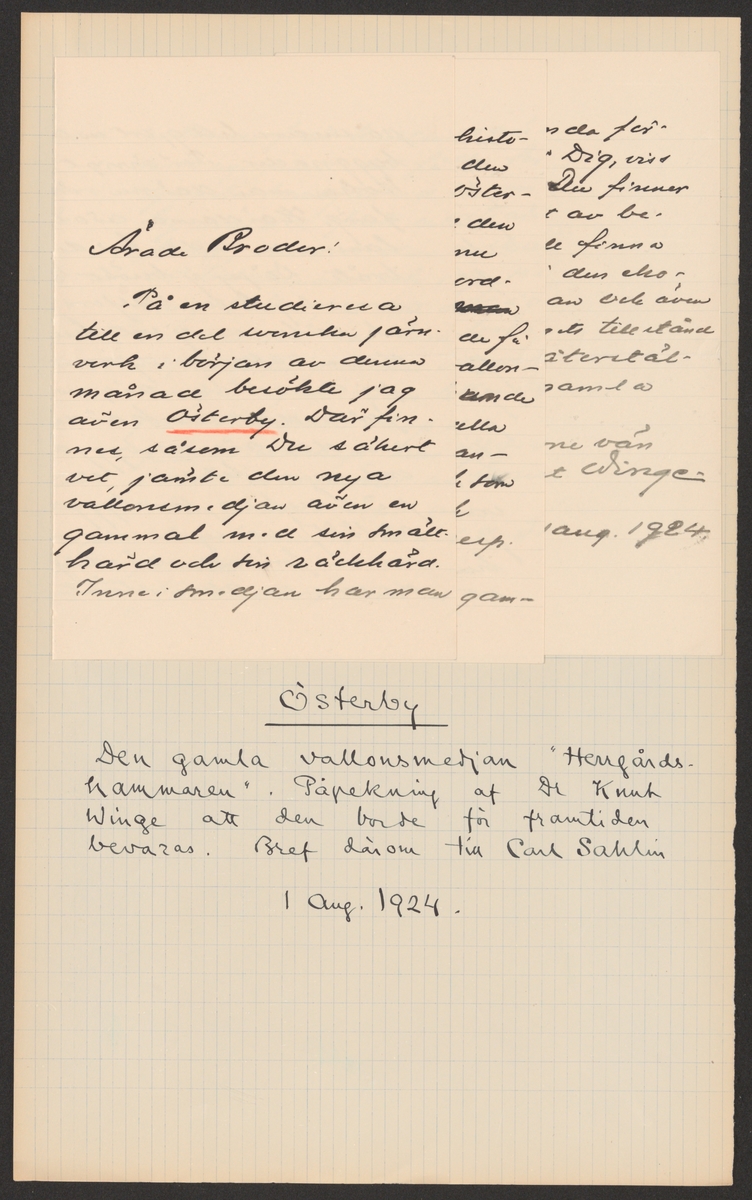 Ärade Broder!
På en studieresa
till en del svenska järn-
verk i början av denna
månad besökte jag
även Österby. Där fin-
nes, såsom Du säkert
vet, jämte den nya
vallonsmedjan även en
gammal med sin smält-
härd och sin räckhärd.
Inne i smedjan har man
histo-
den
öster-
den
nu
ord-
de få
vallon-
ande
ella
an-
som
esp.
gam-
nda för-
Dig, viss
Du finner
t av be-
de finna
den eko-
an och även
ets tillstånd
återstäl-
gamla
ne vän
t Winge
1 aug. 1924.
Österby
Den gamla vallonsmedjan "Herrgårds-
hammaren". Påpekning af Dr Knut
Winge att den borde för framtiden
bevaras. Bref därom till Carl Sahlin
1 Aug. 1924.